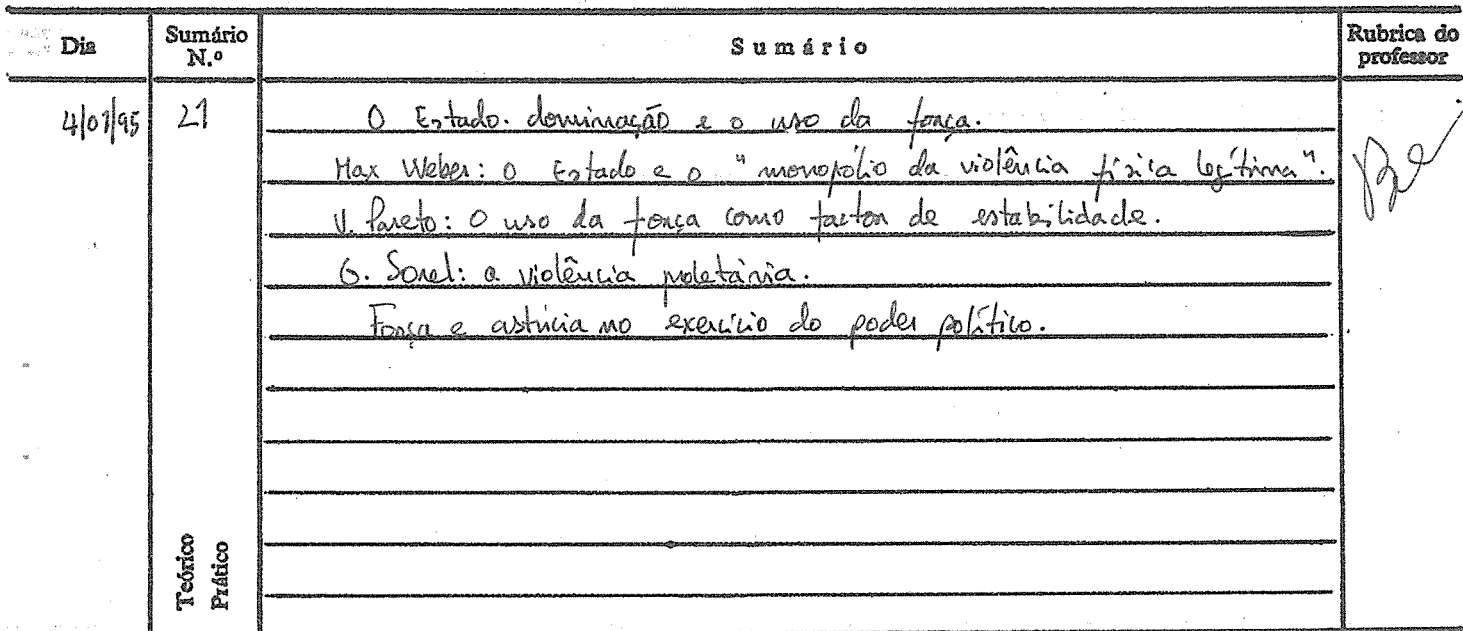 Dia
Sumário N.º
Sumário
Rubrica do professor
4/01/95
21
O Estado. dominação e o uso da força.
Max Weber: o Estado e o "monopólio da violência física legítima".
V. Pareto: O uso da força como factor de estabilidade.
G. Sorel: a violência proletária.
Força e astúcia no exercício do poder político.
Teórico
Prático